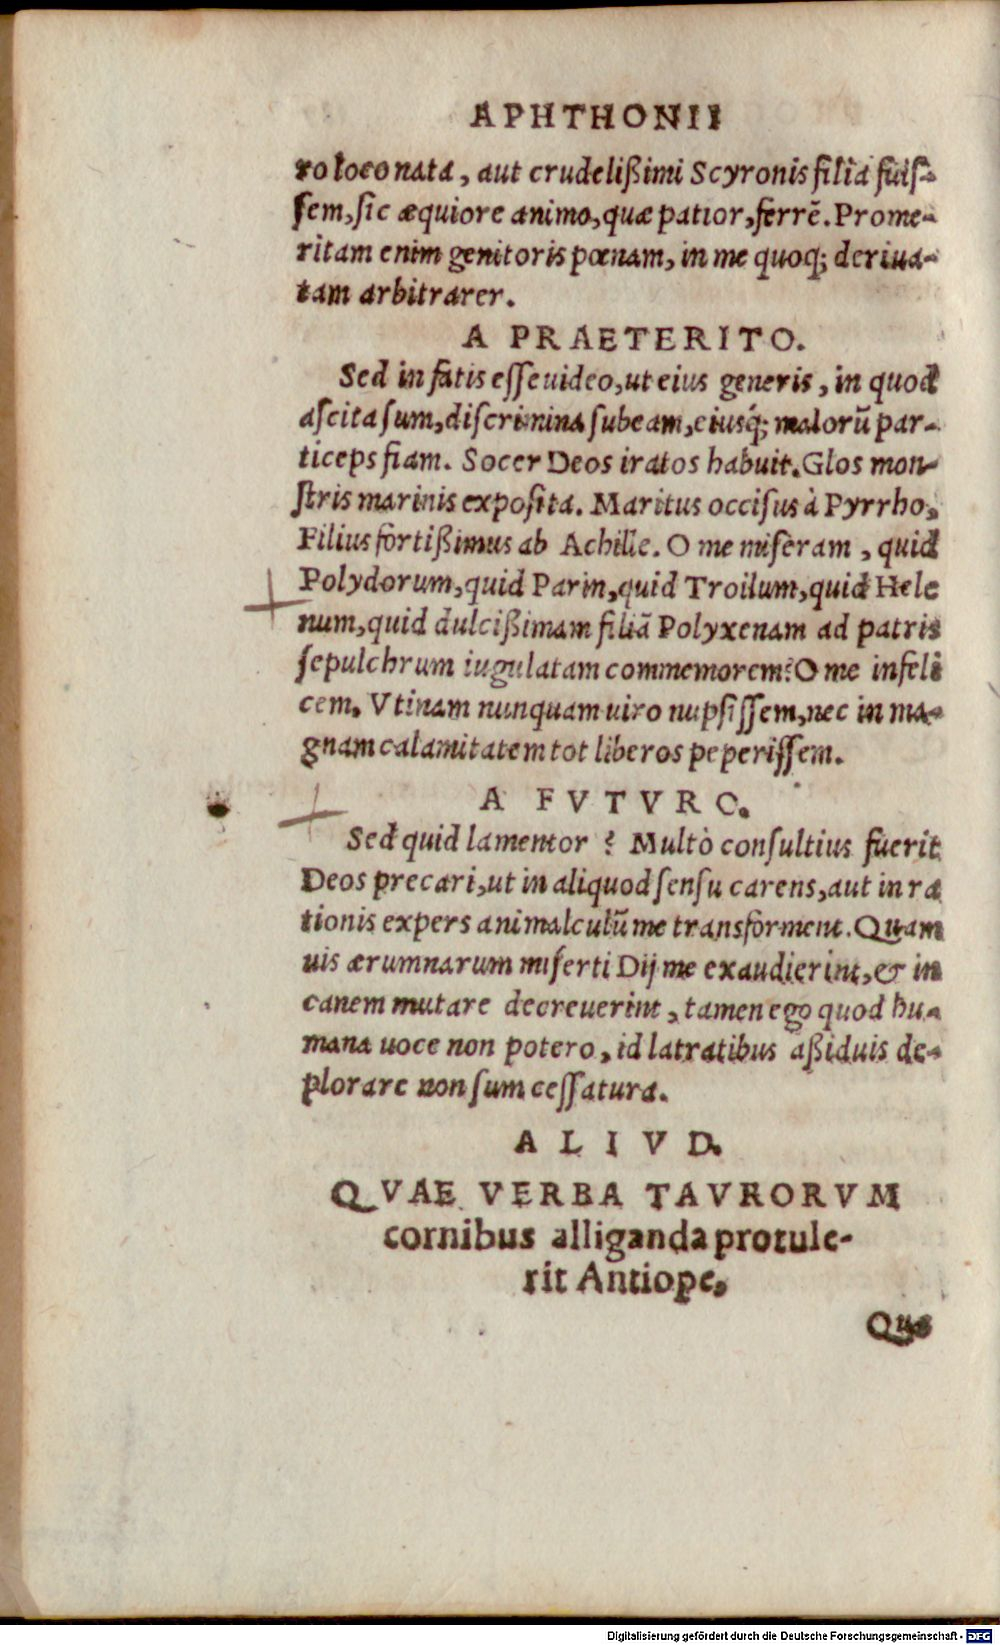 APHTHONII
ro loco nata, aut crudelißimi Scyronis filia fuis-
sem, sic æquiore animo, quæ patior, ferrē. Prome-
ritam enim genitoris pœnam, in me quoq; deriua-
tam arbitrarer.
A PRAETERITO.
Sed in fatis esse uideo, ut eius generis, in quod
ascita sum, discrimina subeam, eiusq́; malorũ par-
ticeps fiam. Socer Deos iratos habuit. Glos mon-
stris marinis exposita. Maritus occisus à Pyrrho,
Filius fortißimus ab Achille. O me miseram, quid
Polydorum, quid Parin, quid Troilum, quid Hele
num, quid dulcißimam filiã Polyxenam ad patris
sepulchrum iugulatam commemorem? O me infeli
cem. Vtinam nunquam uiro nupsissem, nec in ma-
gnam calamitatem tot liberos peperissem.
A FVTVRO.
Sed quid lamentor? Multò consultius fuerit
Deos precari, ut in aliquod sensu carens, aut in ra
tionis expers animalculũ me transforment. Quam
uis ærumnarum miserti Dij me exaudierint, & in
canem mutare decreuerint, tamen ego quod hu-
mana uoce non potero, id latratibus aßiduis de-
plorare non sum cessatura.
ALIVD.
QVAE VERBA TAVRORVM
cornibus alliganda protule-
rit Antiope.
Quę
Digitalisierung gefördert durch die Deutsche Forschungsgemeinschaft - DFG